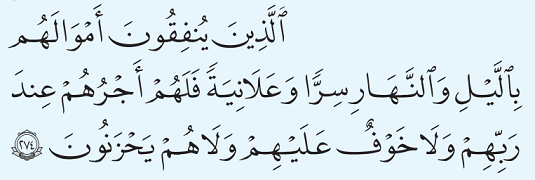 ٱلَّذِينَ يُنفِقُونَ أَمْوَٰلَهُم
بِٱلَّيْلِ وَٱلنَّهَارِ سِرًّا وَعَلَانِيَةً فَلَهُمْ أَجْرُهُمْ عِندَ
رَبِّهِمْ وَلَا خَوْفٌ عَلَيْهِمْ وَلَا هُمْ يَحْزَنُونَ ٢٧٤